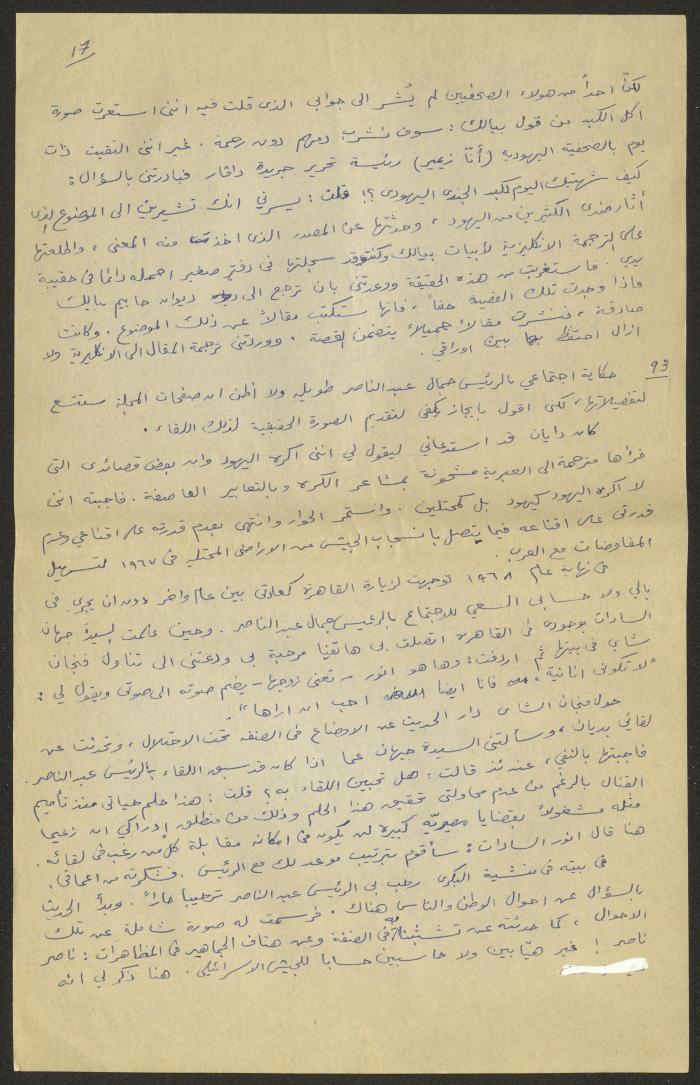 ١٧
لكنّ احداً من هولاء الصحفيين لم يُشر الى جوابي الذى قلت فيه انني استعرت صورة
اكل الكبد من قول بيالك : سوف نشرب دمهم دون رحمة . غير انني التقيت ذات
يوم بالصحفية اليهودية (أنّا زيمير) رئيسة تحرير جريدة دافار فبادرتني بالسؤال :
كيف شهيتك اليوم لكبد الجندى اليهودى ؟! قلت : يسرني انك تشيرين الى الموضوع الذى
أثار ضدى الكثيرين من اليهود ، وحدثتها عن المصدر الذى اخذت منه المعنى ، واطلعتها
على الترجمة الانكليزية لأبيات بيالك وكنت قد سجلتها في دفتر صغير احمله دائما في حقيبة
يدي . فاستغربت من هذه الحقيقة ووعدتني بان ترجع الى ديوان حاييم بيالك
فاذا وجدت تلك القضية حقاً ، فانها ستكتب مقالاً عن ذلك الموضوع . وكانت
صادقة ، فنشرت مقالاً جميلاً يتضمن القصة . ووردتني ترجمة المقال الى الانكليزية ولا
ازال احتفظ بها بين اوراقي .
93
حكاية اجتماعي بالرئيس جمال عبد الناصر طويلة ولا اظن ان صفحات المجلة ستتسع
لتفصيلاتها ، لكنى اقول بايجاز يكفى لتقديم الصورة الحقيقية لذلك اللقاء .
كان دايان قد استدعاني ليقول لي انني اكره اليهود وان بعض قصائدى التى
قرأها مترجمة الى العبرية مشحونة بمشاعر الكره وبالتعابير العاصفة . فاجبته انني
لا اكره اليهود كيهود بل كمحتلين . واستمر الحوار وانتهى بعدم قدرته على اقناعي وعدم
قدرتي على اقناعه فيما يتصل بانسحاب الجيش من الاراضى المحتلة في ١٩٦٧ لتسهيل
المفاوضات مع العرب .
في نهاية عام ١٩٦٨ توجهت لزيارة القاهرة كعادتي بين عام وآخر دون ان يجرى في
بالي ولا حسابي السعي للاجتماع بالرئيس جمال عبد الناصر . وحين علمت السيدة جيهان
السادات بوجودى في القاهرة اتصلت بى هاتفيا مرحبة بى ودعتني الى تناول فنجان
شاى في بيتها ثم اردفت : وها هو انور – تعنى زوجها – يضم صوته الى صوتي ويقول لي :
"لا تكونى انانية" فانا ايضا احب ان اراها" .
حول فنجان الشاى دار الحديث عن الاوضاع في الضفة تحت الاحتلال ، وتحدثت عن
لقائي بديان ، وسألتني السيدة جيهان عما اذا كان قد سبق اللقاء بالرئيس عبد الناصر
فاجبتها بالنفي ، عندئذ قالت : هل تحبين اللقاء به ؟ قلت : هذا حلم حياتي منذ تأميم
القنال بالرغم من عدم محاولتى تحقيق هذا الحلم وذلك من منطلق إدراكي ان زعيما
مثله مشغولاً بقضايا مصيريّة كبيرة لن يكون في امكانه مقابلة كل من رغب في لقائه .
هنا قال انور السادات : سأقوم بترتيب موعد لك مع الرئيس . فشكرته من اعماقي .
في بيته في منشية البكرى رحب بى الرئيس عبد الناصر ترحيبا حاراً . وبدأ الحديث
بالسؤال عن احوال الوطن والناس هناك . فرسمت له صورة شاملة عن تلك
الاحوال ، كما حدثته عن تشبثنا به في الضفة وعن هتاف الجماهير في المظاهرات : ناصر
ناصر ! غير هيّابين ولا حاسبين حسابا للجيش الاسرائيلي . هنا ذكر لي انه